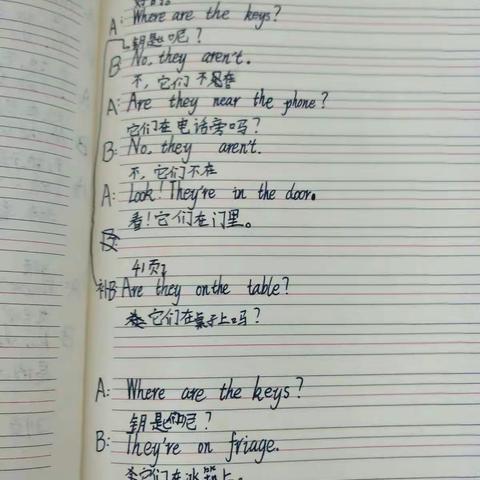 A: Where are the keys?
钥匙呢?
B No, they aren't.
不,它们不在
A: Are they near the phone?
它们在电话旁吗?
B: No, they aren't.
不,它们不在
A: Look! They're in the door.
看!它们在门里。
41页
补B: Are they on the table?
它们在桌子上吗?
A: Where are the keys?
钥匙呢?
B: They're on friage.
它们在冰箱上。